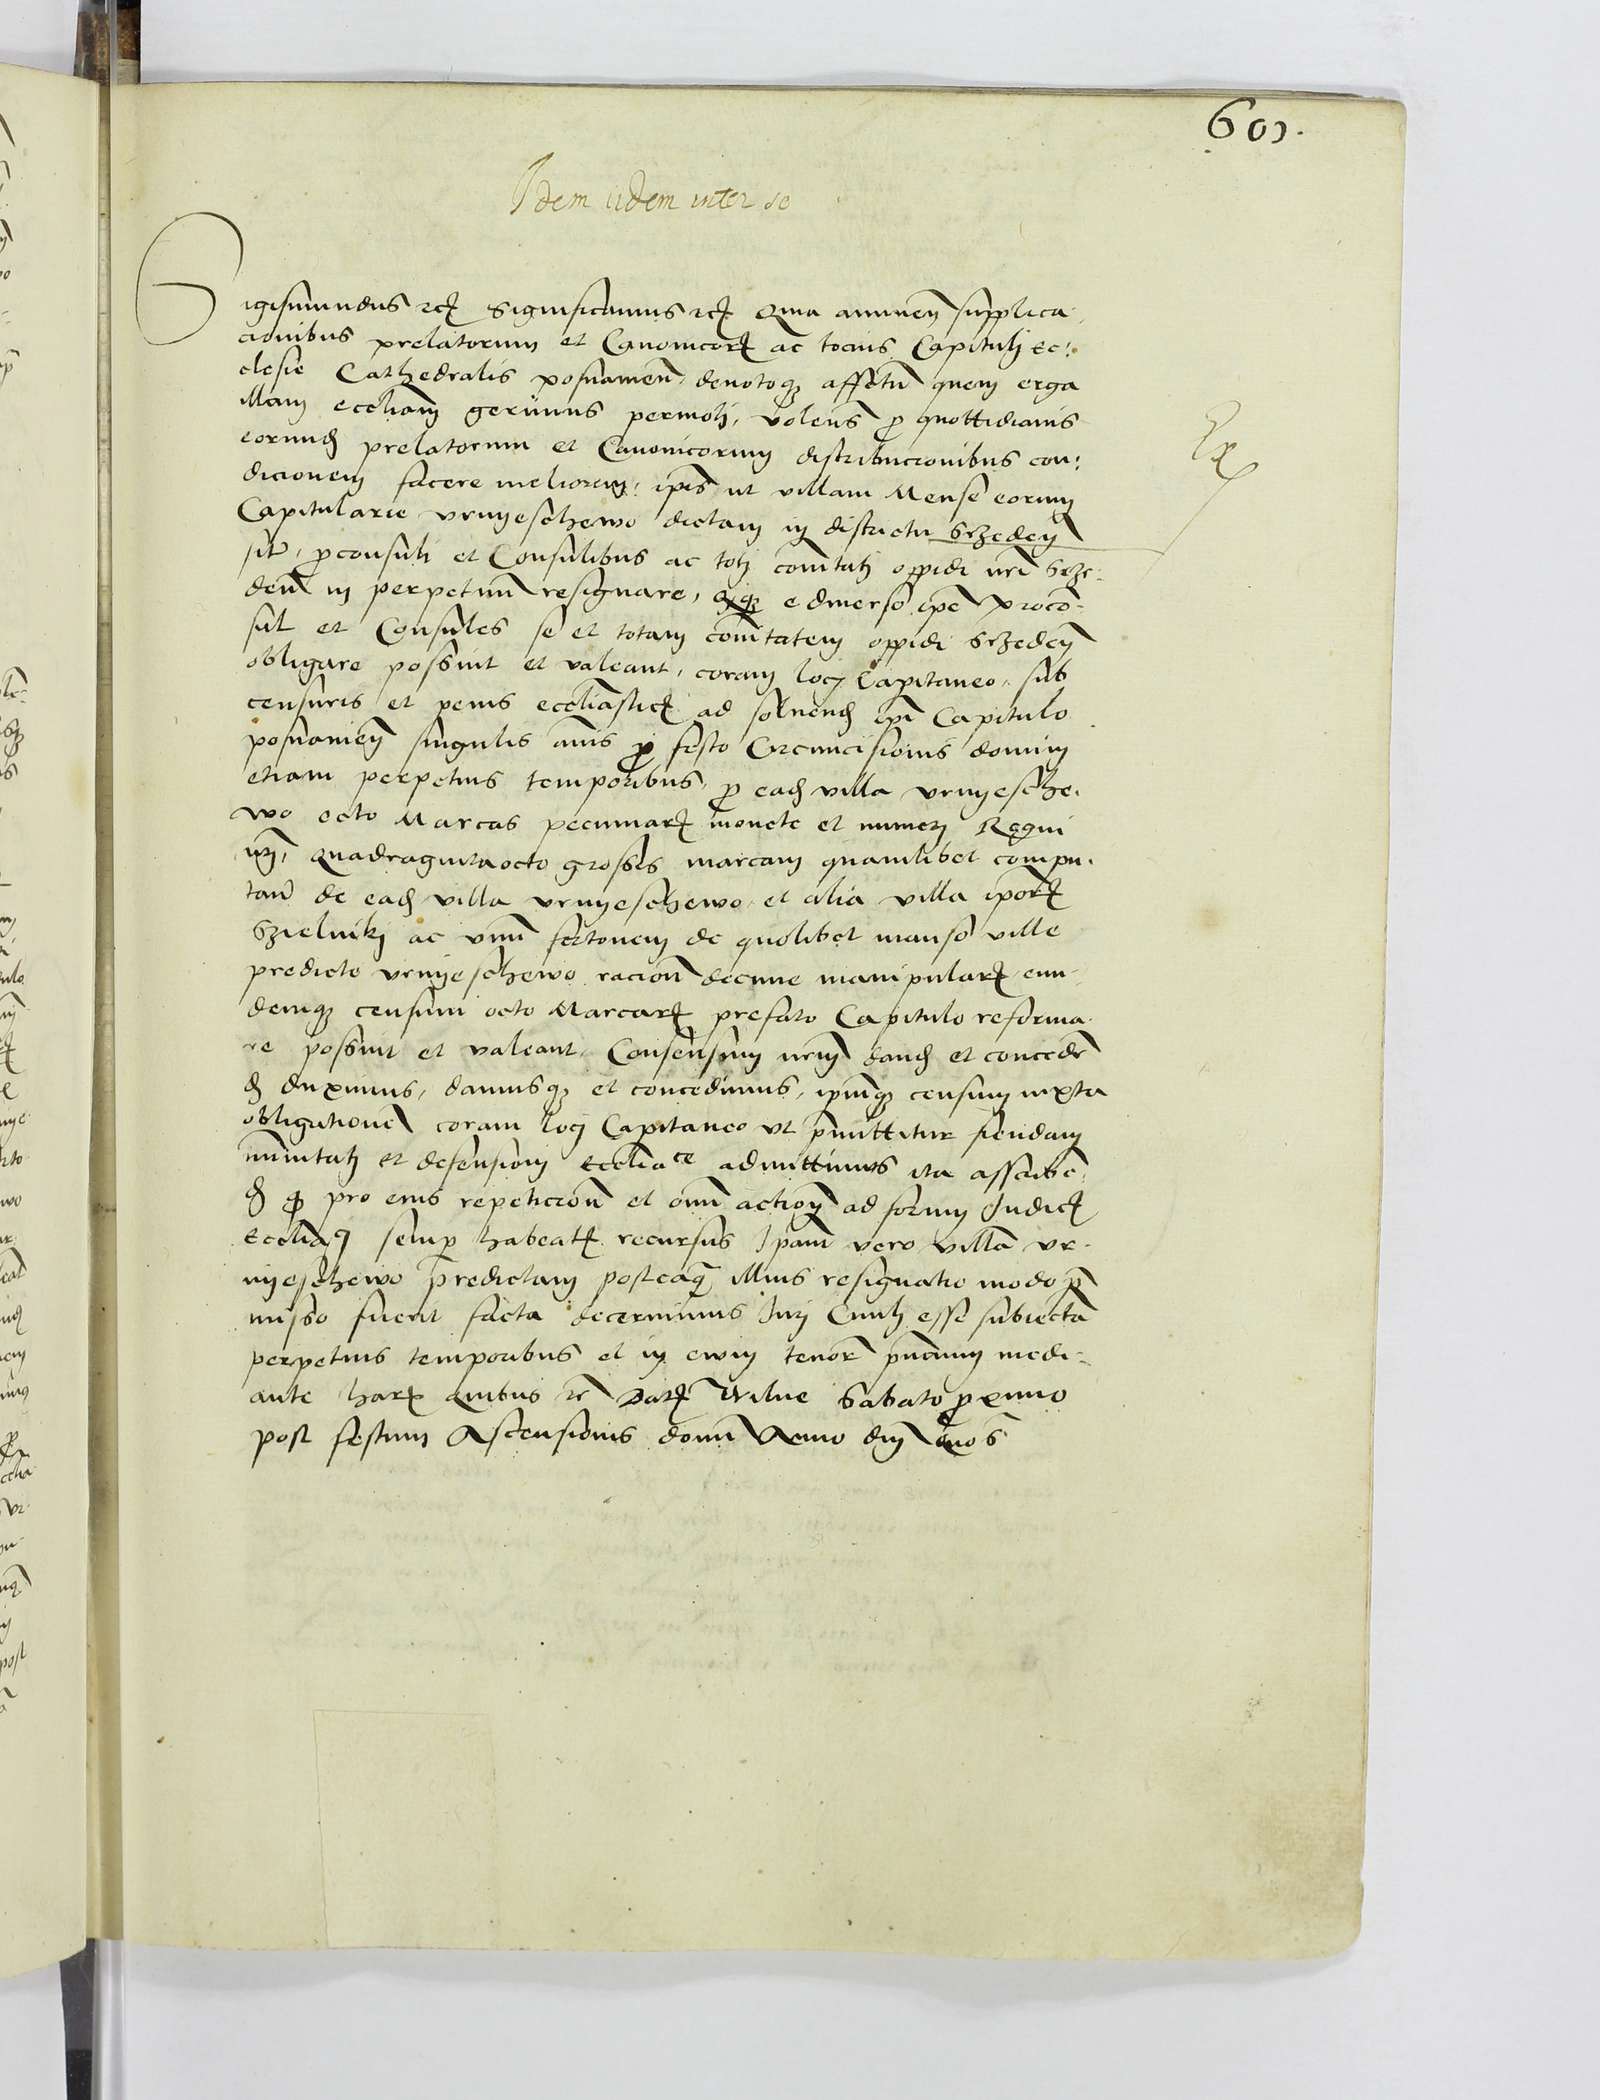 601.
Idem iidem inter se
Sigismundus etc Significamus etc Quia animen supplica-
cionibus prelatorum et Canonicorꝝ ac tocius Capituli Ec-
clesie Cathedralis posnanien̄. deuotoqꝫ affctū quem erga
illam eccliam gerimus permoti, volens ꝓ quottidianis
Ex
eorundꝫ prelatorum et Canonicorum distribucionibus con-
dicionem facere meliorem, ip̄is ut villam Mense eorum
Capitularie vrnyeschewo dictam in districtu Srzeden̄
sit̄, ꝓconsuli et Consulibus ac toti com̄tati oppidi nr̄i Srze-
den̄ in perpetuū resignare, e diuerso ip̄e proco-
sul et Consules se et totam com̄itatem oppidi Srzeden̄
obligare possint et valeant, coram loci Capitaneo, sub
censuris et penis eccliasticꝭ ad soluendꝫ ip̄i Capitulo
posnanien̄ singulis annis ꝓ festo Circumcisionis domini
etiam perpetuis temporibus, ꝓ eadꝫ villa vrnyesche-
wo octo Marcas pecuniarꝝ monete et numeri Regni
nr̄i, Quadragintaocto grossos marcam quamlibet compu-
tan̄ de eadꝫ villa vrnyeschewo et alia villa ip̄orꝝ
Szielniki ac vnū fertonem de quolibet manso ville
predicte vrnyeschewo racion̄ decime manipularꝭ eun-
demqꝫ censum octo Marcarꝝ prefato Capitulo reforma-
re possint et valeant. Consensum nrm̄ dandꝫ et conceden̄
dꝫ duximus, damusqꝫ et concedimus, ip̄umqꝫ censum iuxta
obligationē coram loci Capitaneo vt p̄mittitur fiendam
im̄unitati et defensioni Eccliace admittimus ita asscribē
dꝫ ꝙ pro eius repeticion̄ et om̄i action̄ ad forum Iudicꝭ
Eccliaci semꝑ habeatꝭ recursus Ip̄am vero villā vr-
nyeschewo predictam posteaqꝫ illius resignatio modo p̄
misso fuerit facta decernimus Iuri Ciuili esse subiectā
perpetuis temporibus et in ewm̄ tenore p̄ntium medi-
ante harꝝ quibus etc Datꝭ Wilne Sabato ꝓximo
post festum Ascensionis domī Anno dn̄i quo sꝭ